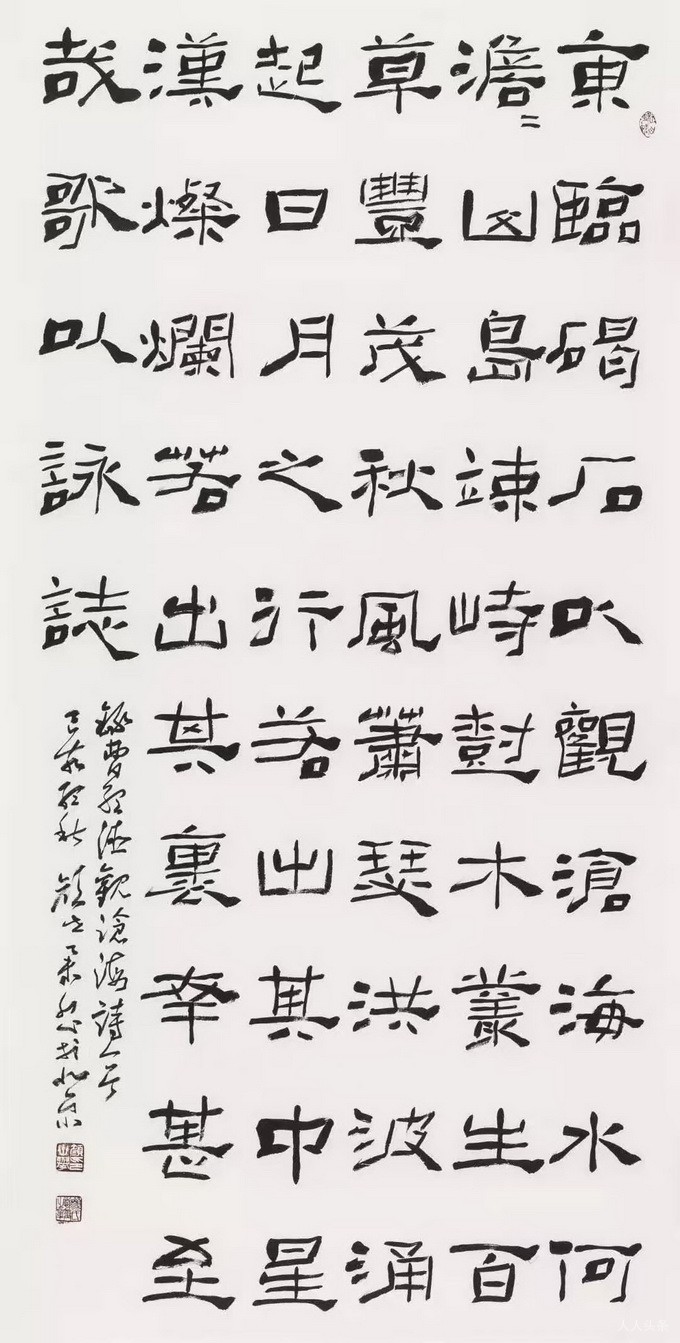 東臨碣石以觀滄海水何
澹〻山島竦峙樹木叢生百
草豐茂秋風蕭瑟洪波涌
起日月之行若出其中星
漢燦爛若出其裏幸甚至
哉歌以詠誌
錄曹孟德觀滄海詩一首
己亥孟秋於北京